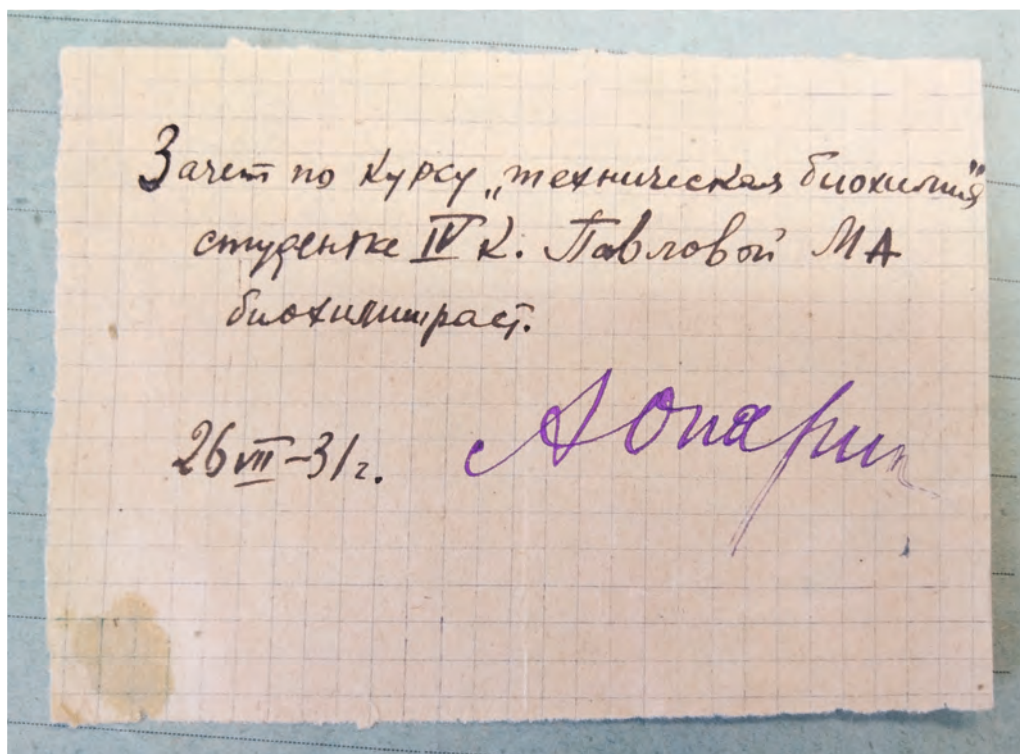 Зачет по курсу „техническая биохимия"
студентке IV к. Павловой МА
биохимиираст.
26 VII-31г. АОпарин